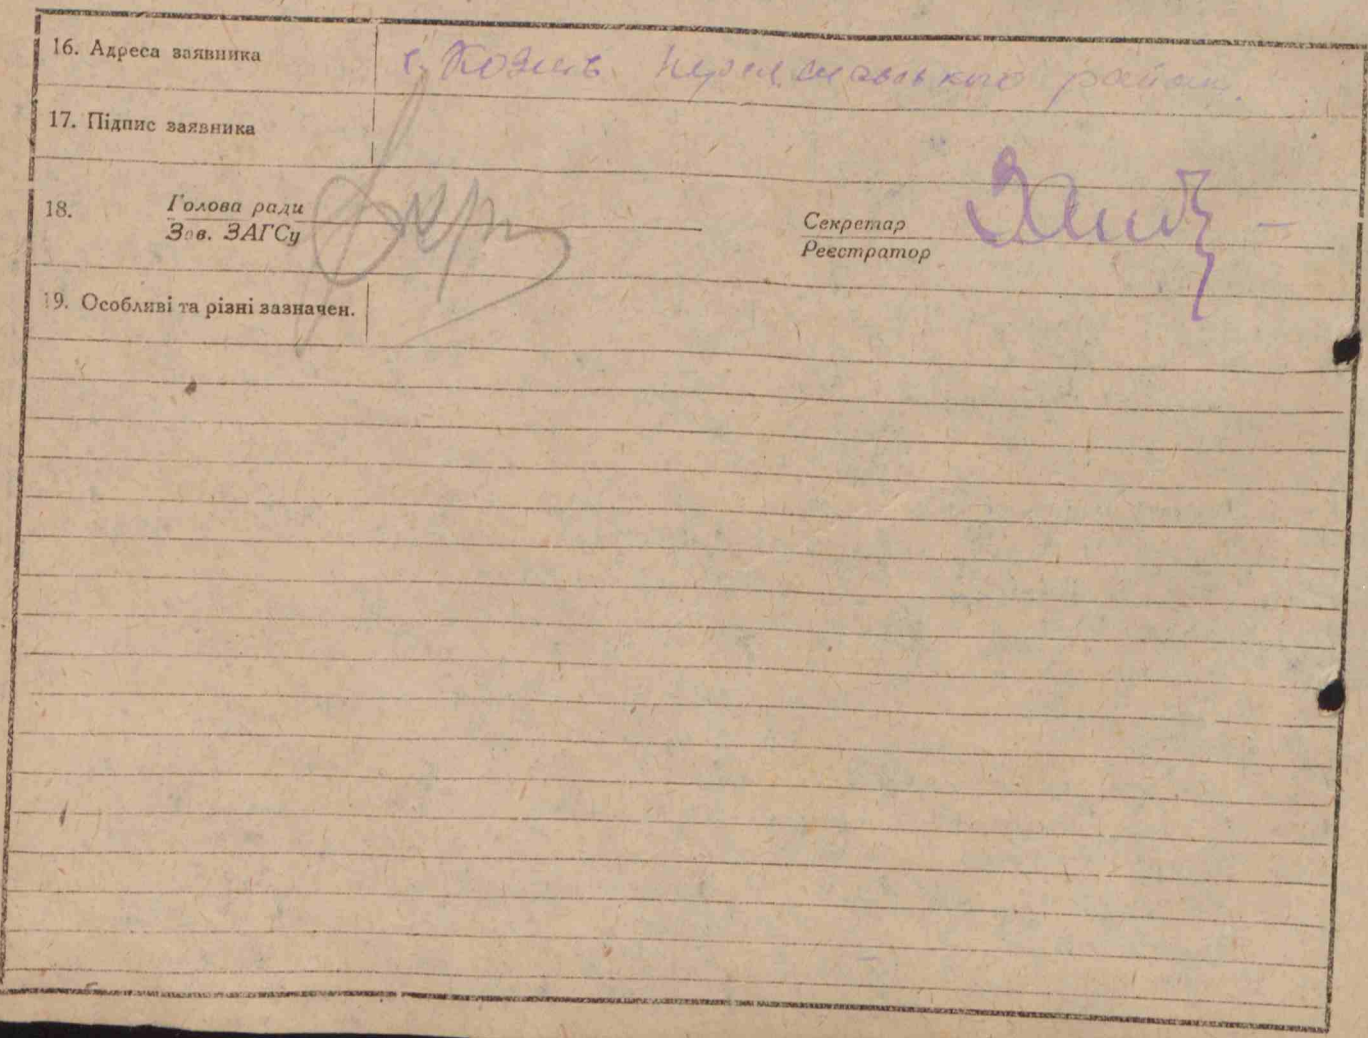 16. Адреса заявника с. Козин Переяславського району.
17. Підпис заявника
18. Голова ради
Зав. ЗАГСу
Секретар
Реєстратор
19. Особливі та різні зазначен.